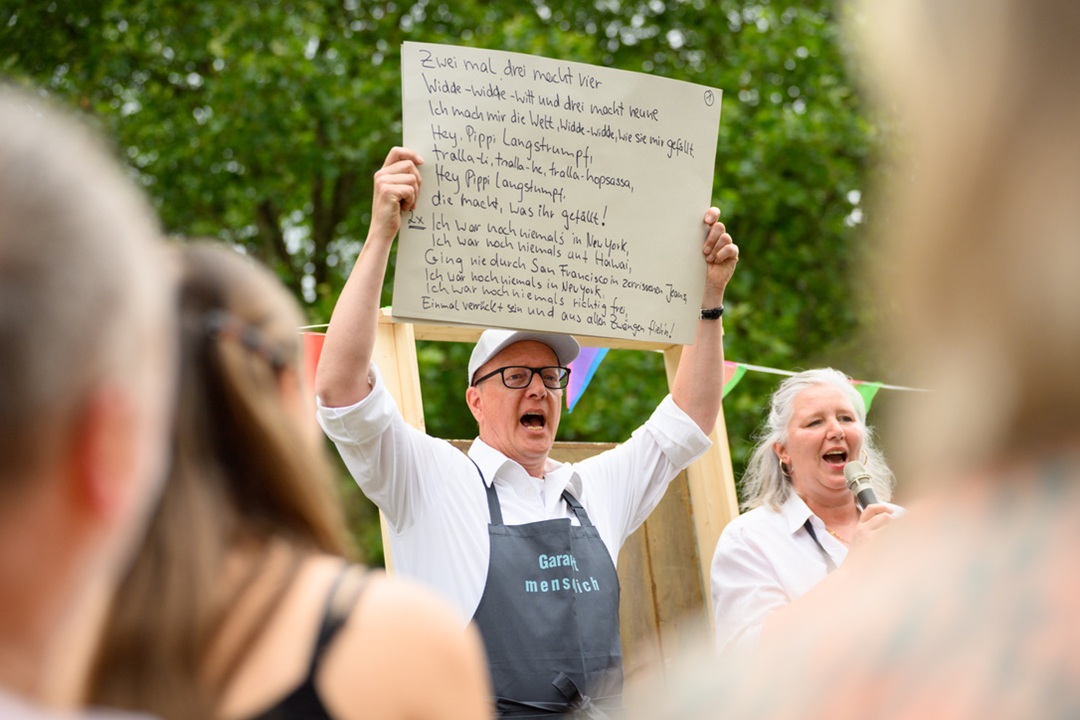 Zwei mal drei macht vier
①
Widde-widde-witt und drei macht neune
Ich mach mir die Welt, widde-widde, wie sie mir gefällt.
Hey, Pippi Langstrumpf,
tralla-li, tralla-he, tralla-hopsassa,
Hey Pippi Langstumpf,
die macht, was ihr gefällt!
2x Ich war noch niemals in New York,
Ich war noch niemals auf Hawai,
Ging nie durch San Francisco in zerrissenen Jeans,
Ich war noch niemals in New York,
Ich war noch niemals richtig frei,
Einmal verrückt sein und aus allen Zwängen flieh'n!
Garan
mens lich